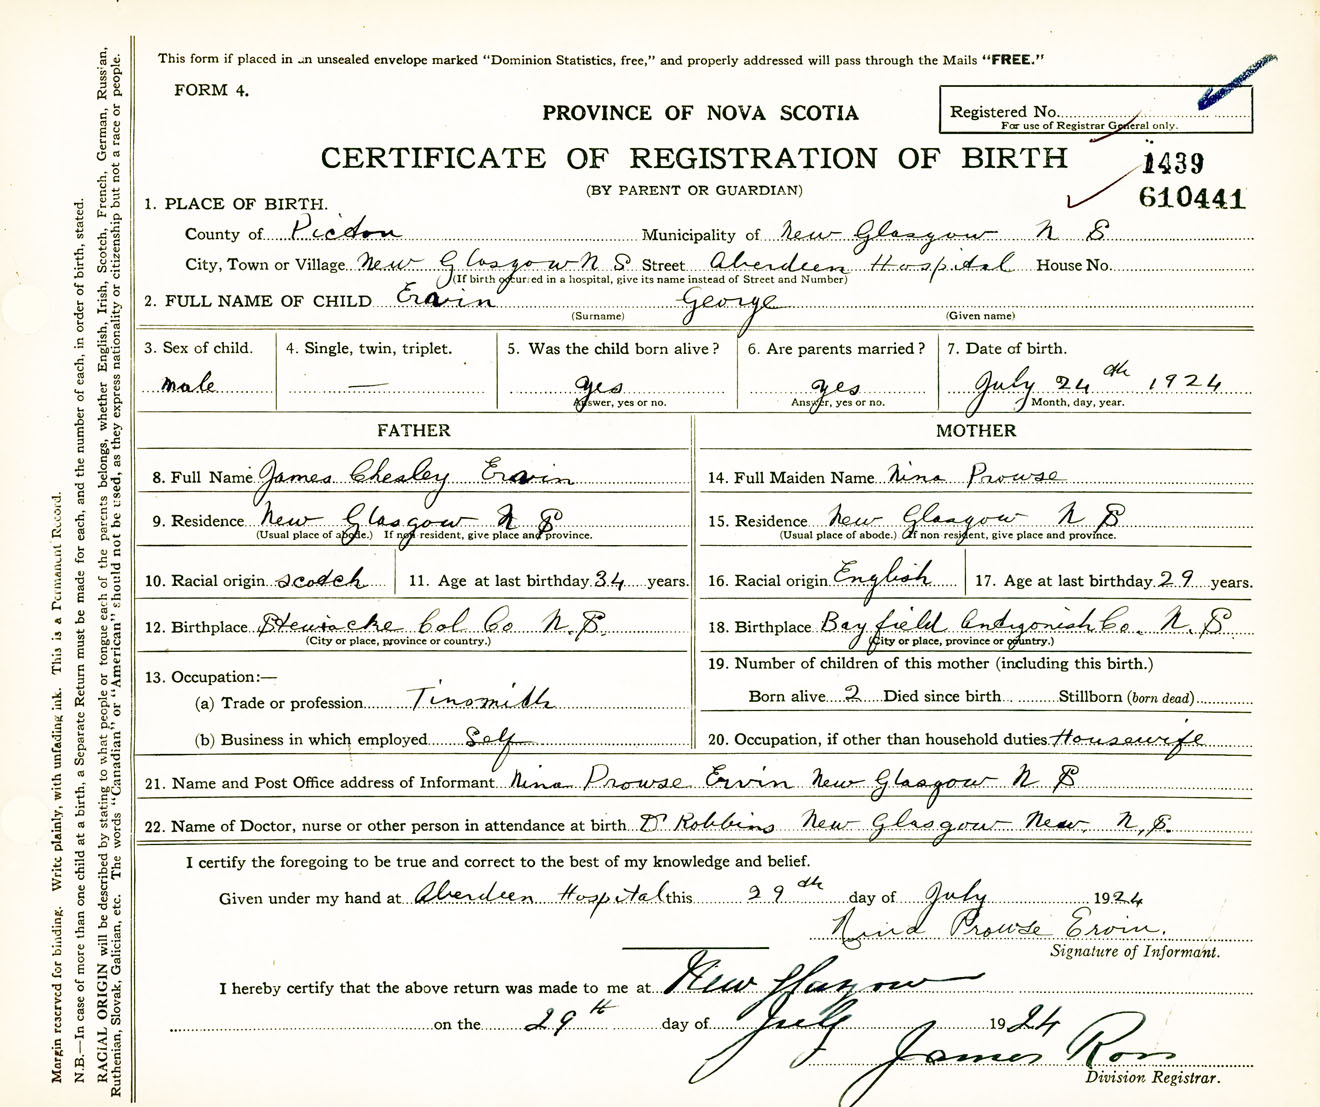 This form if placed in an unsealed envelope marked "Dominion Statistics, free," and properly addressed will pass through the Mails "FREE."
FORM 4.
PROVINCE OF NOVA SCOTIA
Registered No.
For use of Registrar General only.
CERTIFICATE OF REGISTRATION OF BIRTH
1439
(BY PARENT OR GUARDIAN)
610441
1. PLACE OF BIRTH.
County of Pictou Municipality of New Glasgow N S
City, Town or Village New Glasgow N S Street Aberdeen Hospital House No.
(If birth occurred in a hospital, give its name instead of Street and Number)
2. FULL NAME OF CHILD Ervin George
(Surname) (Given name)
3. Sex of child. 4. Single, twin, triplet. 5. Was the child born alive? 6. Are parents married? 7. Date of birth.
male — yes yes July 24th 1924
Answer, yes or no. Answer, yes or no. Month, day, year.
FATHER MOTHER
8. Full Name James Chesley Ervin 14. Full Maiden Name Nina Prowse
9. Residence New Glasgow N S 15. Residence New Glasgow N S
(Usual place of abode.) If non-resident, give place and province. (Usual place of abode.) If non resident, give place and province.
10. Racial origin scotch 11. Age at last birthday 34 years. 16. Racial origin English 17. Age at last birthday 29 years.
12. Birthplace Stewiacke Col Co N.S. 18. Birthplace Bayfield Antigonish Co. N.S
(City or place, province or country.) (City or place, province or country.)
13. Occupation:— 19. Number of children of this mother (including this birth.)
(a) Trade or profession Tinsmith Born alive 2 Died since birth Stillborn (born dead)
(b) Business in which employed Self 20. Occupation, if other than household duties Housewife
21. Name and Post Office address of Informant Nina Prowse Ervin New Glasgow N S
22. Name of Doctor, nurse or other person in attendance at birth Dr Robbins New Glasgow New. N,S.
I certify the foregoing to be true and correct to the best of my knowledge and belief.
Given under my hand at Aberdeen Hospital this 29th day of July 1924
Nina Prowse Ervin.
Signature of Informant.
I hereby certify that the above return was made to me at New Glasgow
on the 29th day of July 1924
James Ross
Division Registrar.
Margin reserved for binding. Write plainly, with unfading ink. This is a Permanent Record.
N.B.—In case of more than one child at a birth, a Separate Return must be made for each, and the number of each, in order of birth, stated.
RACIAL ORIGIN will be described by stating to what people or tongue each of the parents belongs, whether English, Irish, Scotch, French, German, Russian,
Ruthenian, Slovak, Galician, etc. The words "Canadian" or "American" should not be used, as they express nationality or citizenship but not a race or people.